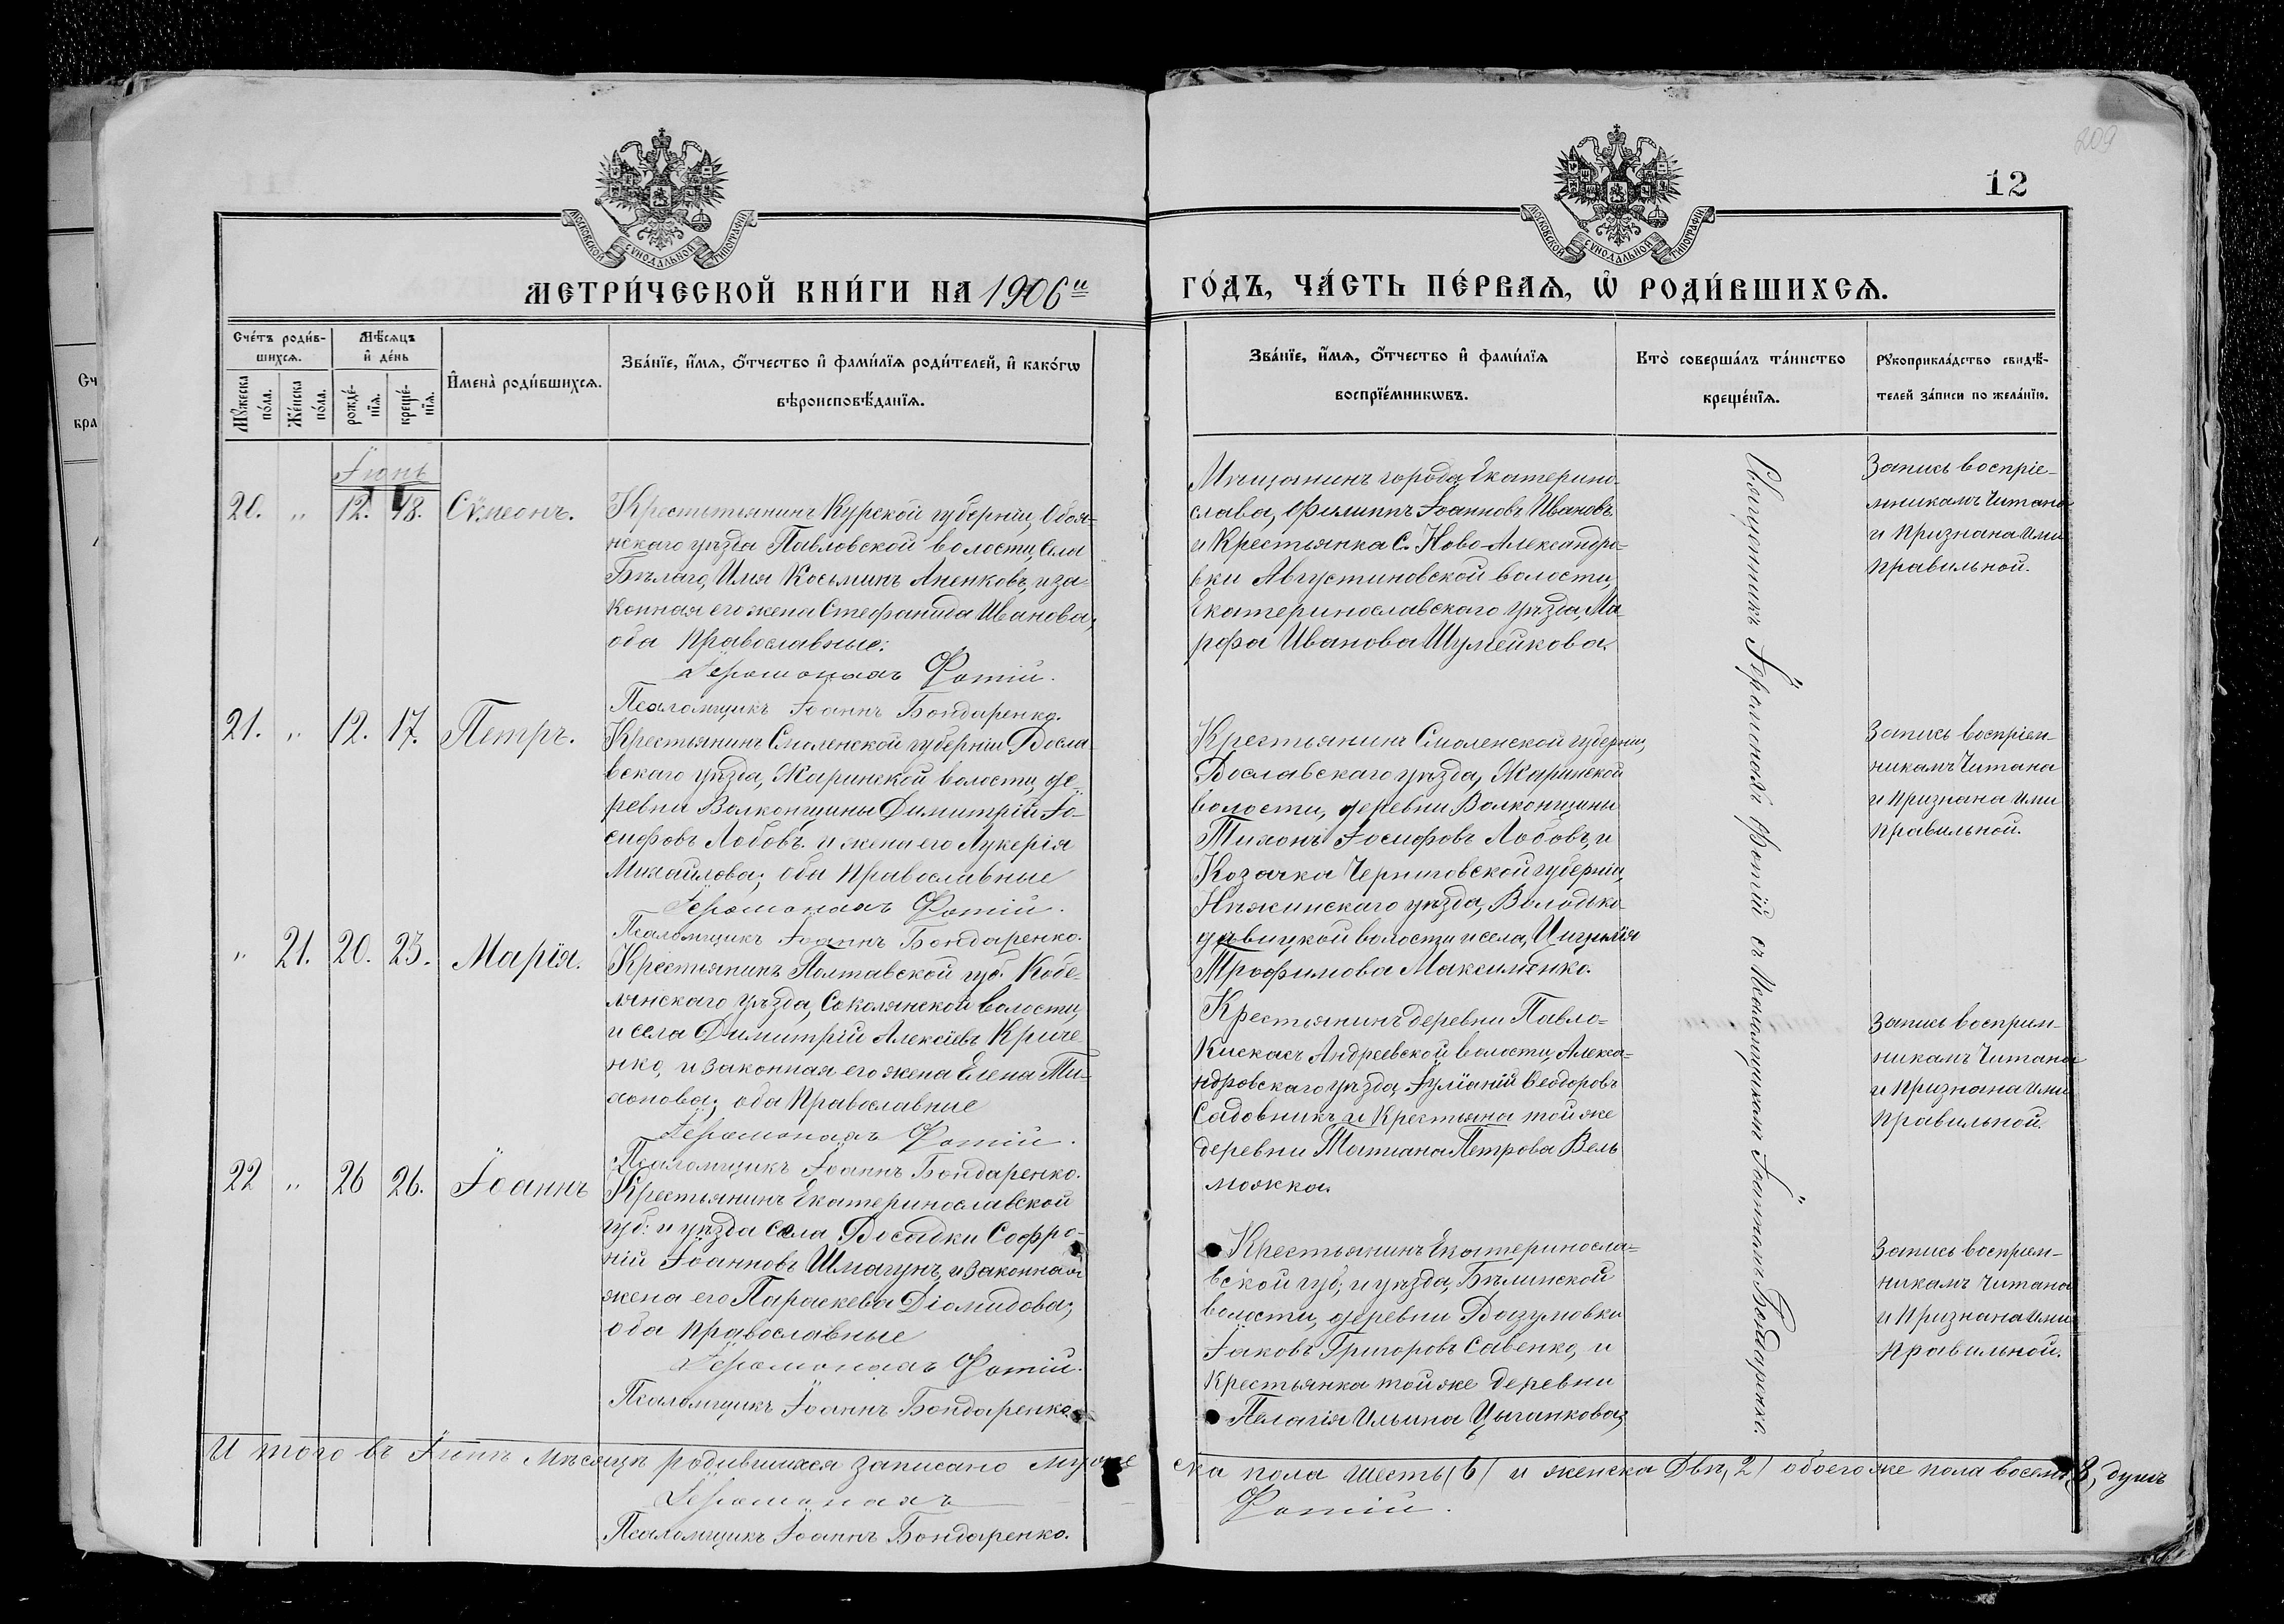 209
12
МОСКОВСКОЙ СѴНОДАЛЬНОЙ ТИПОГРАФІИ
МОСКОВСКОЙ СѴНОДАЛЬНОЙ ТИПОГРАФІИ
МЕТРИ́ЧЕСКОЙ КНИ́ГИ НА 1906й
ГО́ДЪ, ЧА́СТЬ ПЕ́РВАѦ, Ѡ҆ РОДИ́ВШИХСѦ.
Сче́тъ роди́в-
шихсѧ.
Мꙋ́жеска
по́ла.
Же́нска
по́ла.
Мѣ́сѧцъ
и҆ де́нь
рожде́-
нїѧ.
креще́-
нїѧ.
И҆мена̀ роди́вшихсѧ.
Зва́нїе, и҆́мѧ, ѻ҆́тчество и҆ фами́лїѧ роди́телей, и҆ како́гѡ
вѣроисповѣ́данїѧ.
Зва́нїе, и҆́мѧ, ѻ҆́тчество и҆ фами́лїѧ
воспрїе́мникѡвъ.
Кто̀ соверша́лъ та́инство
креще́нїѧ.
Рꙋкоприкла́дство свидѣ́-
телей за́писи по жела́нїю.
Іюнь
20. „ 12. 18. Сѵмеонъ.
Крестьянинъ Курской губерніи, Обоя-
нскаго уѣзда Павловской волости, села
Бѣлаго, Илія Косьминъ Аненковъ, и за-
конная его жена Стефанида Иванова;
оба православные:
Іеромонахъ Фотій.
Псаломщикъ Іоаннъ Бондаренко.
Мѣщанинъ города Екатерино-
слава, Филиппъ Іоанновъ Ивановъ
и Крестьянка с. Ново-Александро-
вки Августиновской волости,
Екатеринославскаго уѣзда, Ма-
рфа Иванова Шумейкова.
Запись воспріе-
мникамъ читана
и признана ими
правильной.
21. „ 12. 17. Петръ.
Крестьянинъ Смоленской губерніи Росла-
вскаго уѣзда, Жаринской волости, де-
ревни Волконщины Димитрій Іо-
сифовъ Лобовъ. и жена его Лукерія
Михайлова; оба православные
Іеромонахъ Фотій.
Псаломщикъ Іоаннъ Бондаренко.
Крестьянинъ Смоленской губерніи,
Рославскаго уѣзда, Жаринской
волости, деревни Волконщины
Тихонъ Іосифовъ Лобовъ, и
Козачка Черниговской губерніи,
Нѣжинскаго уѣзда, Володько-
дѣвицкой волости и села,
Трофимова Максименко.
Запись воспріем-
никамъ читана
и признана ими
правильной.
„ 21. 20. 23. Марія.
Крестьянинъ Полтавской губ. Кобе-
лянскаго уѣзда, Соколянской волости,
и села Димитрій Алексіевъ Криче-
нко, и законная его жена Елена Ти-
хонова; оба православные
Іеромонахъ Фотій.
Псаломщикъ Іоаннъ Бондаренко.
Крестьянинъ деревни Павло-
Кискасъ Андреевской волости, Алекса-
ндровскаго уѣзда, Іуліаній Ѳеодоровъ
Садовникъ и Крестьянка той же
деревни Татіана Петрова Вель
можка.
Запись воспріем-
никамъ читана
и признана ими
правильной.
22 „ 26 26. Іоаннъ
Крестьянинъ Екатеринославской
губ: и уѣзда села Восадки Софро-
ній Іоанновъ Шмагунъ, и законная
жена его Параскева Діомидова;
оба православные
Іеромонахъ Фотій.
Псаломщикъ Іоаннъ Бондаренко.
Крестьянинъ Екатериносла-
вской губ; и уѣзда, Бѣлинской
волости, деревни Розумовки
Іаковъ Григоровъ Савенко, и
Крестьянка той же деревни
Пелагія Ильина Цыганкова;
Запись воспріем-
никамъ читана
и признана ими
правильной.
Священникъ Іеромонахъ Фотій съ псаломщикомъ Іоанномъ Бондаренко.
И того въ Іюнѣ мѣсяцѣ родившихся записано муже
ска пола шесть (6) и женска двѣ, 2) обоего же пола восемь 8, душъ
Іеромонахъ
Фотій.
Псаломщикъ Іоаннъ Бондаренко.